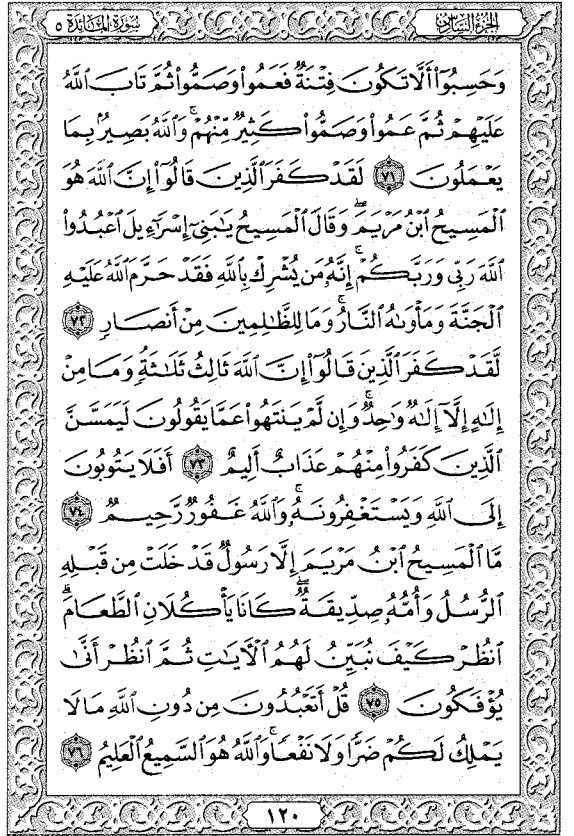 سُورَةُ المَائدة ٥
الجزءُ السَّادِسُ
وَحَسِبُوٓا۟ أَلَّا تَكُونَ فِتْنَةٌ فَعَمُوا۟ وَصَمُّوا۟ ثُمَّ تَابَ ٱللَّهُ
عَلَيْهِمْ ثُمَّ عَمُوا۟ وَصَمُّوا۟ كَثِيرٌ مِّنْهُمْ ۚ وَٱللَّهُ بَصِيرٌۢ بِمَا
يَعْمَلُونَ ٧١ لَقَدْ كَفَرَ ٱلَّذِينَ قَالُوٓا۟ إِنَّ ٱللَّهَ هُوَ
ٱلْمَسِيحُ ٱبْنُ مَرْيَمَ ۖ وَقَالَ ٱلْمَسِيحُ يَٰبَنِىٓ إِسْرَٰٓءِيلَ ٱعْبُدُوا۟
ٱللَّهَ رَبِّى وَرَبَّكُمْ ۖ إِنَّهُۥ مَن يُشْرِكْ بِٱللَّهِ فَقَدْ حَرَّمَ ٱللَّهُ عَلَيْهِ
ٱلْجَنَّةَ وَمَأْوَىٰهُ ٱلنَّارُ ۖ وَمَا لِلظَّٰلِمِينَ مِنْ أَنصَارٍ ٧٢
لَّقَدْ كَفَرَ ٱلَّذِينَ قَالُوٓا۟ إِنَّ ٱللَّهَ ثَالِثُ ثَلَٰثَةٍ ۘ وَمَا مِنْ
إِلَٰهٍ إِلَّآ إِلَٰهٌ وَٰحِدٌ ۚ وَإِن لَّمْ يَنتَهُوا۟ عَمَّا يَقُولُونَ لَيَمَسَّنَّ
ٱلَّذِينَ كَفَرُوا۟ مِنْهُمْ عَذَابٌ أَلِيمٌ ٧٣ أَفَلَا يَتُوبُونَ
إِلَى ٱللَّهِ وَيَسْتَغْفِرُونَهُۥ ۚ وَٱللَّهُ غَفُورٌ رَّحِيمٌ ٧٤
مَّا ٱلْمَسِيحُ ٱبْنُ مَرْيَمَ إِلَّا رَسُولٌ قَدْ خَلَتْ مِن قَبْلِهِ
ٱلرُّسُلُ وَأُمُّهُۥ صِدِّيقَةٌ ۖ كَانَا يَأْكُلَانِ ٱلطَّعَامَ ۗ
ٱنظُرْ كَيْفَ نُبَيِّنُ لَهُمُ ٱلْـَٔايَٰتِ ثُمَّ ٱنظُرْ أَنَّىٰ
يُؤْفَكُونَ ٧٥ قُلْ أَتَعْبُدُونَ مِن دُونِ ٱللَّهِ مَا لَا
يَمْلِكُ لَكُمْ ضَرًّا وَلَا نَفْعًا ۚ وَٱللَّهُ هُوَ ٱلسَّمِيعُ ٱلْعَلِيمُ ٧٦
١٢٠